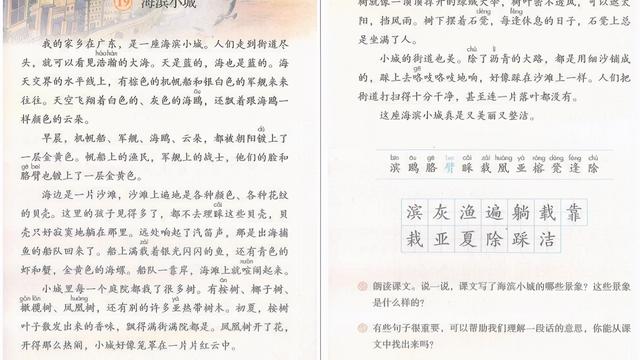 19 海滨小城
我的家乡在广东，是一座海滨小城。人们走到街道尽
hào hàn
头，就可以看见浩瀚的大海。天是蓝的，海也是蓝的。海
天交界的水平线上，有棕色的机帆船和银白色的军舰来来
ōu
往往。天空飞翔着白色的、灰色的海鸥，还飘着跟海鸥一
样颜色的云朵。
dù
早晨，机帆船、军舰、海鸥、云朵，都被朝阳镀上了
一层金黄色。帆船上的渔民，军舰上的战士，他们的脸和
gē bei
胳臂也镀上了一层金黄色。
海边是一片沙滩，沙滩上遍地是各种颜色、各种花纹
cǎi
的贝壳。这里的孩子见得多了，都不去理睬这些贝壳，贝
壳只好寂寞地躺在那里。远处响起了汽笛声，那是出海捕
zài
鱼的船队回来了。船上满载着银光闪闪的鱼，还有青色的
xuān
虾和蟹，金黄色的海螺。船队一靠岸，海滩上就喧闹起来。
ān
小城里每一个庭院都栽了很多树。有桉树、椰子树、
gǎn lǎn huáng
橄榄树、凤凰树，还有别的许多亚热带树木。初夏，桉树
叶子散发出来的香味，飘得满街满院都是。凤凰树开了花，
开得那么热闹，小城好像笼罩在一片片红云中。
阳，挡风雨。树下摆着石凳，每逢休息的日子，石凳上总
是坐满了人。
小城的街道也美。除了沥青的大路，都是用细沙铺成
的，踩上去咯吱咯吱地响，好像踩在沙滩上一样。人们把
街道打扫得十分干净，甚至连一片落叶都没有。
这座海滨小城真是又美丽又整洁。
bīn ōu gē bei cǎi zāi huáng yà róng dèng féng chú
滨 鸥 胳 臂 睬 栽 凰 亚 榕 凳 逢 除
滨 灰 渔 遍 躺 载 靠
栽 亚 夏 除 踩 洁
朗读课文。说一说，课文写了海滨小城的哪些景象？这些景象
是什么样的？
有些句子很重要，可以帮助我们理解一段话的意思，你能从课
文中找出来吗？